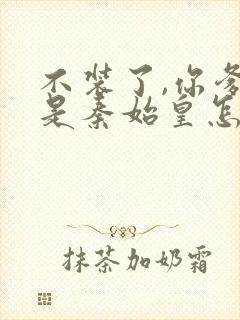 不装了,你爹
是秦始皇怎
抹茶加奶霜